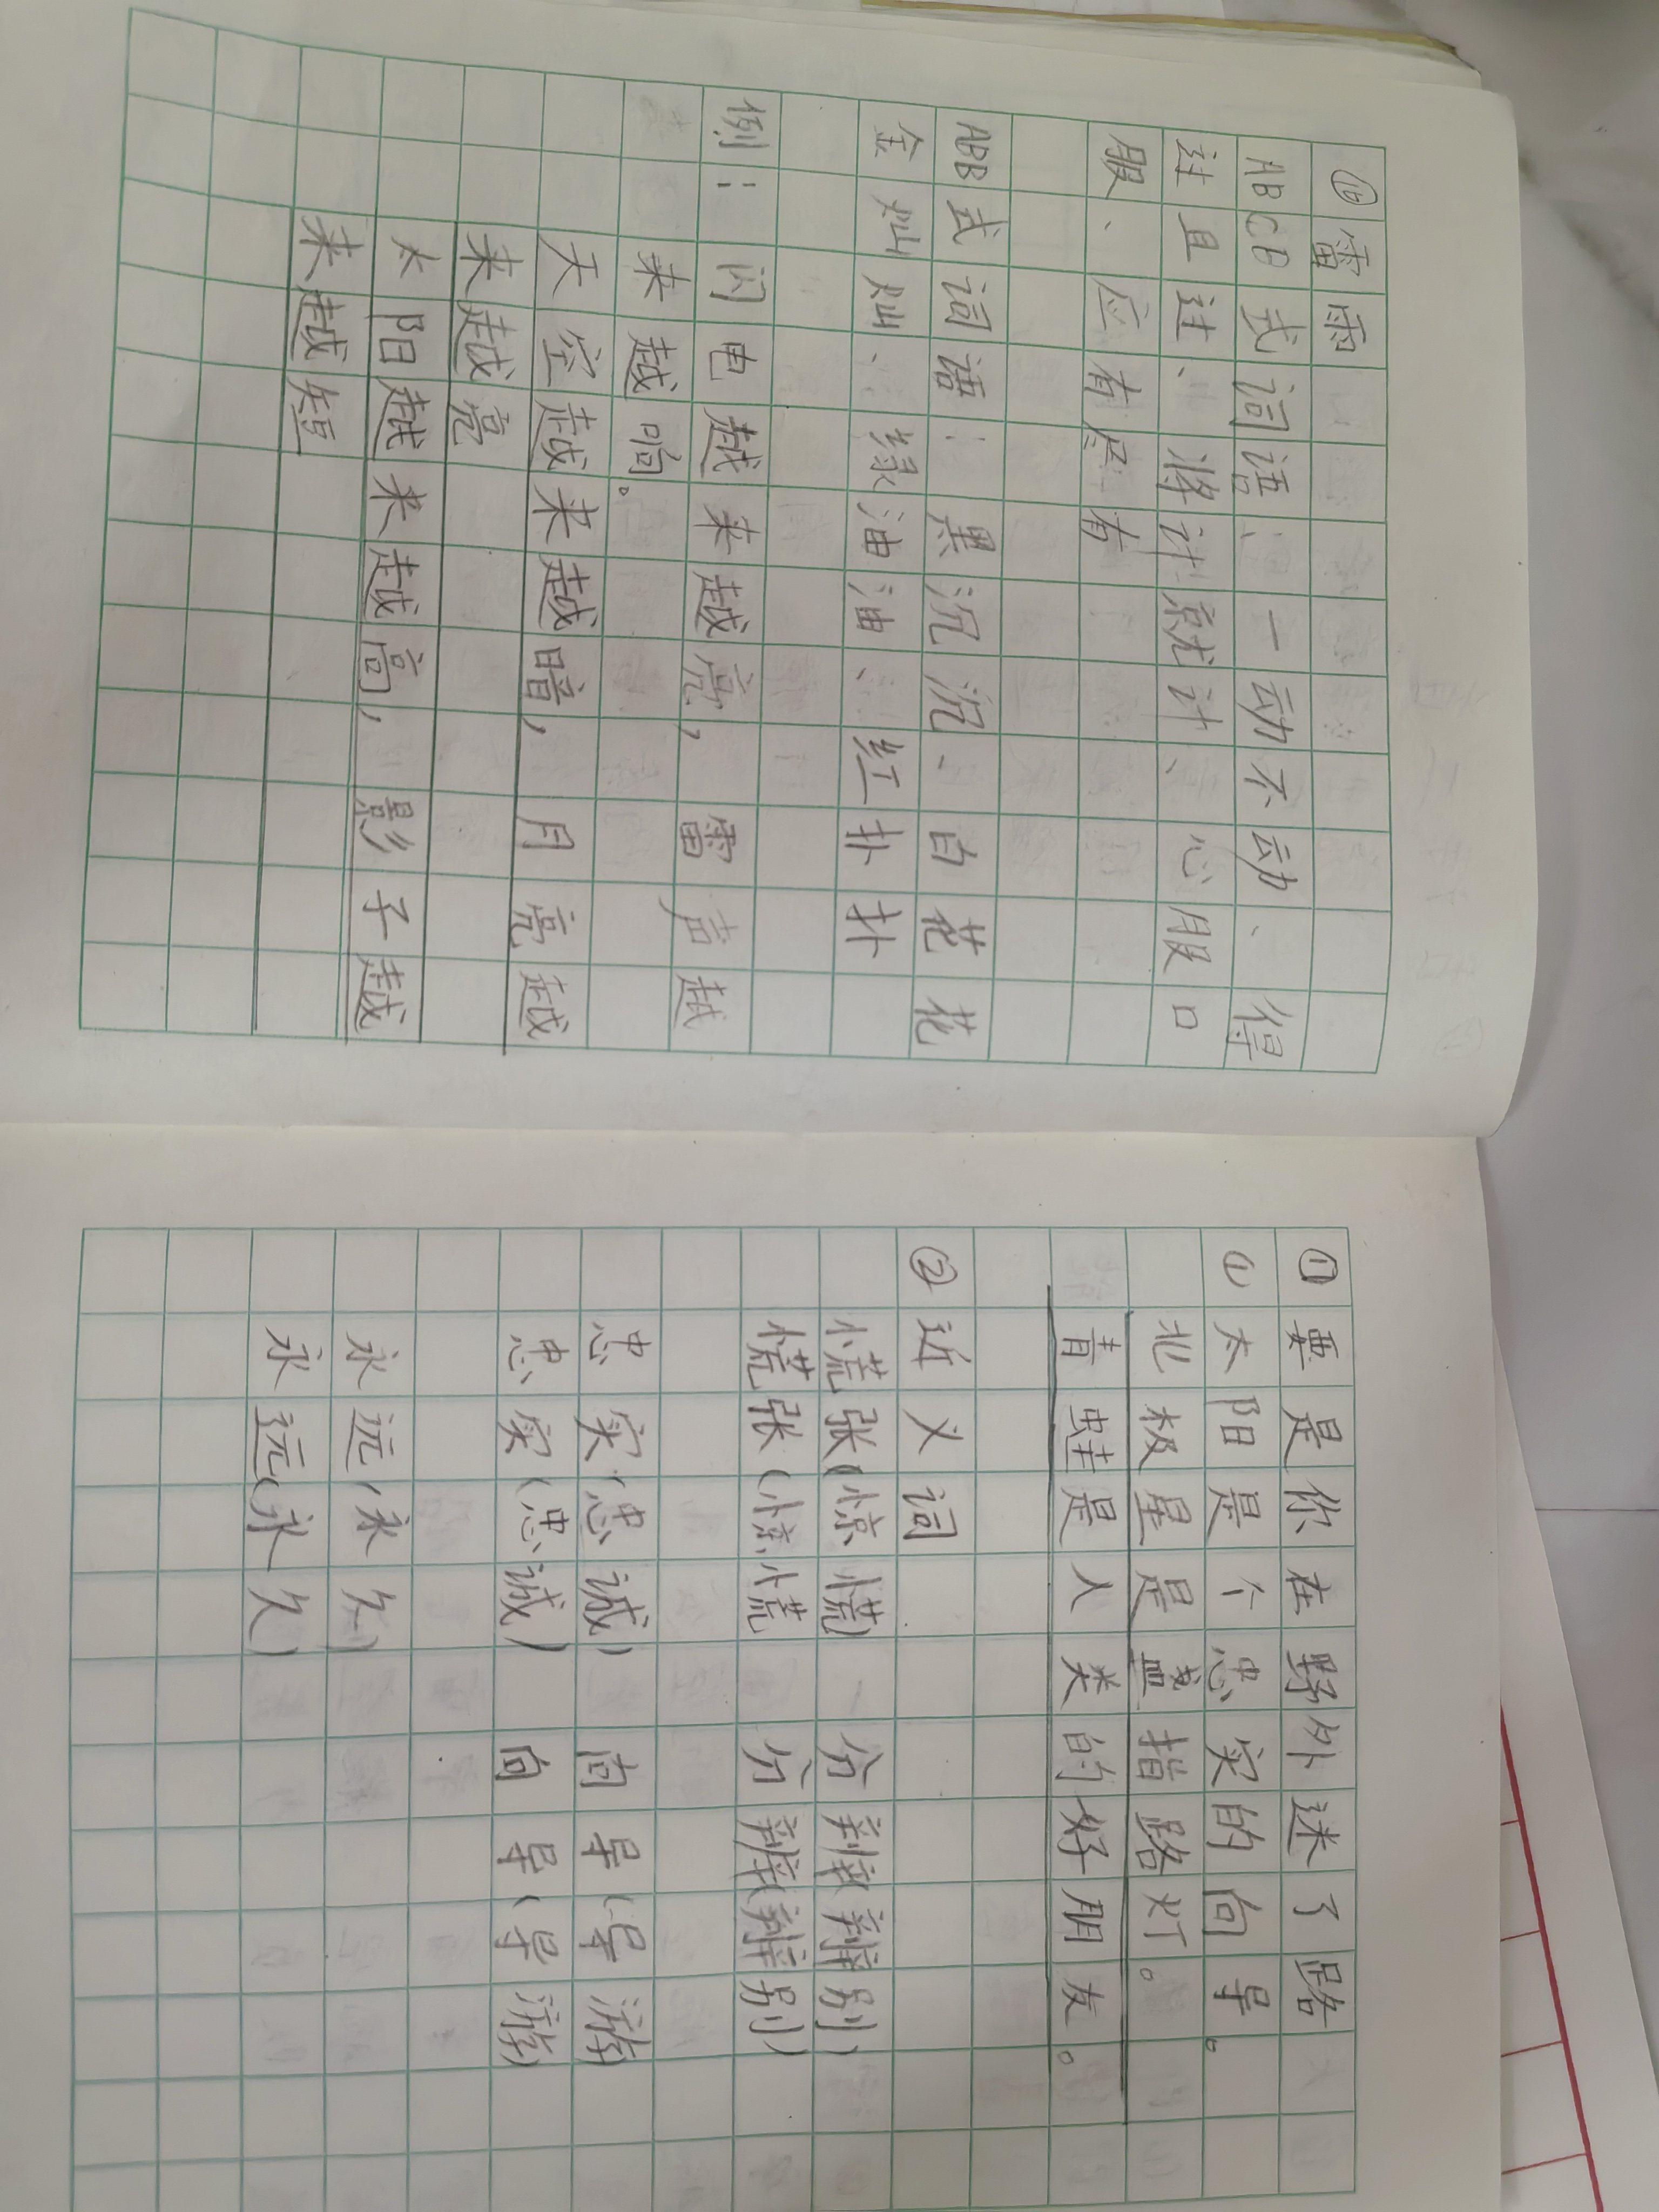 ⑯雷雨
ABCB式词语：一动不动、得
过且过、将计就计、心服口
服、应有尽有
ABB式词语：黑沉沉、白花花
金灿灿、绿油油、红扑扑
例：闪电越来越亮，雷声越
来越响。
天空越来越暗，月亮越
来越亮
太阳越来越高，影子越
来越短
⑰要是你在野外迷了路
①太阳是个忠实的向导。
北极星是盏指路灯。
青蛙是人类的好朋友。
②近义词
慌张(惊慌) 分辨(辨别)
慌张(惊慌 分辨(辨别)
忠实(忠诚) 向导(导游)
忠实(忠诚) 向导(导游)
永远(永久)
永远(永久)